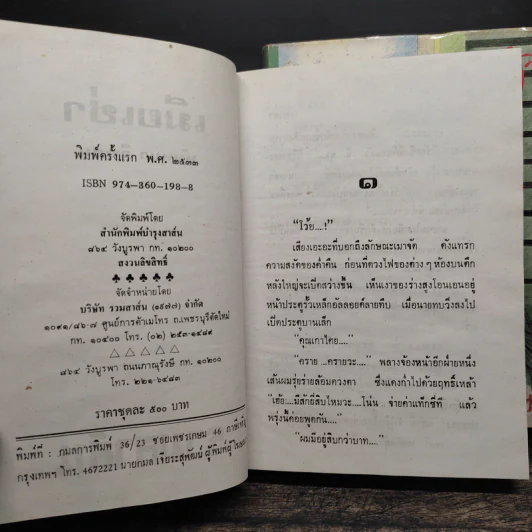 พิมพ์ครั้งแรก พ.ศ. ๒๕๓๓
ISBN 974-360-198-8
จัดพิมพ์โดย
สำนักพิมพ์บำรุงสาส์น
๘๖๔ วังบูรพา กท. ๑๐๒๐๐
สงวนลิขสิทธิ์
♣ ♣ ♣ ♣ ♣
จัดจำหน่ายโดย
บริษัท รวมสาส์น (๑๙๗๗) จำกัด
๑๐๙๑/๘๖-๗ ศูนย์การค้าเมโทร ถ.เพชรบุรีตัดใหม่
กท. ๑๐๔๐๐ โทร. (๐๒) ๒๕๓-๑๔๘๙
△ △ △ △ △
๘๖๔ วังบูรพา ถนนภาณุรังษี กท ๑๐๒๐๐
โทร. ๒๒๑-๖๔๘๓
ราคาชุดละ ๕๐๐ บาท
พิมพ์ที่ : กมลการพิมพ์ 36/23 ซอยเพชรเกษม 46 ภาษีเจริญ
กรุงเทพฯ โทร. 4672221 นายกมล เจียระสุพัฒน์ ผู้พิมพ์ผู้
๑
"โว้ย....!"
เสียงเอะอะที่บอกถึงลักษณะเมาจัด ดังแทรก
ความสงัดของค่ำคืน ก่อนที่ดวงไฟของต่าง ๆ ห้องบนตึก
หลังใหญ่จะเปิดสว่างขึ้น เห็นเงาของร่างสูงโอนเอนอยู่
หน้าประตูรั้วเหล็กอัลลอยด์ลายทึบ เมื่อนายทบวิ่งลงไป
เปิดประตูบานเล็ก
"คุณเกาไคย...."
"คราย ...ครายวะ...." พลางจ้องหน้าอีกฝ่ายหนึ่ง
เส้นผมรุ่ยร่ายล้อมดวงตา ซึ่งแดงก่ำไปด้วยฤทธิ์เหล้า
"เฮ้ย....มีสักยี่สิบไหมวะ....โน่น จ่ายค่าแท็กซี่ที แล้ว
พรุ่งนี้ค่อยพูดกัน...."
"ผมมีอยู่สิบกว่าบาท...."